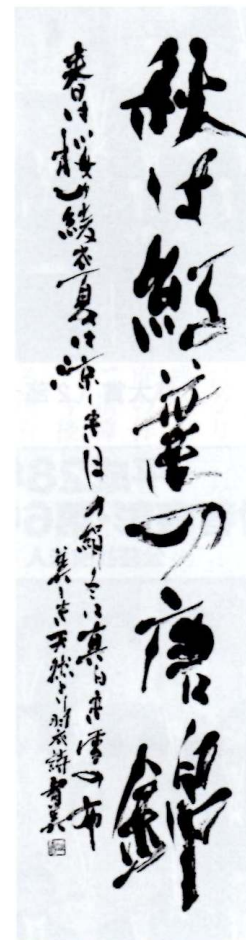 秋は紅葉の唐錦
春は桜の綾衣夏は涼しき月の絹冬は真白き雪の布
美しき天然より羽衣詩